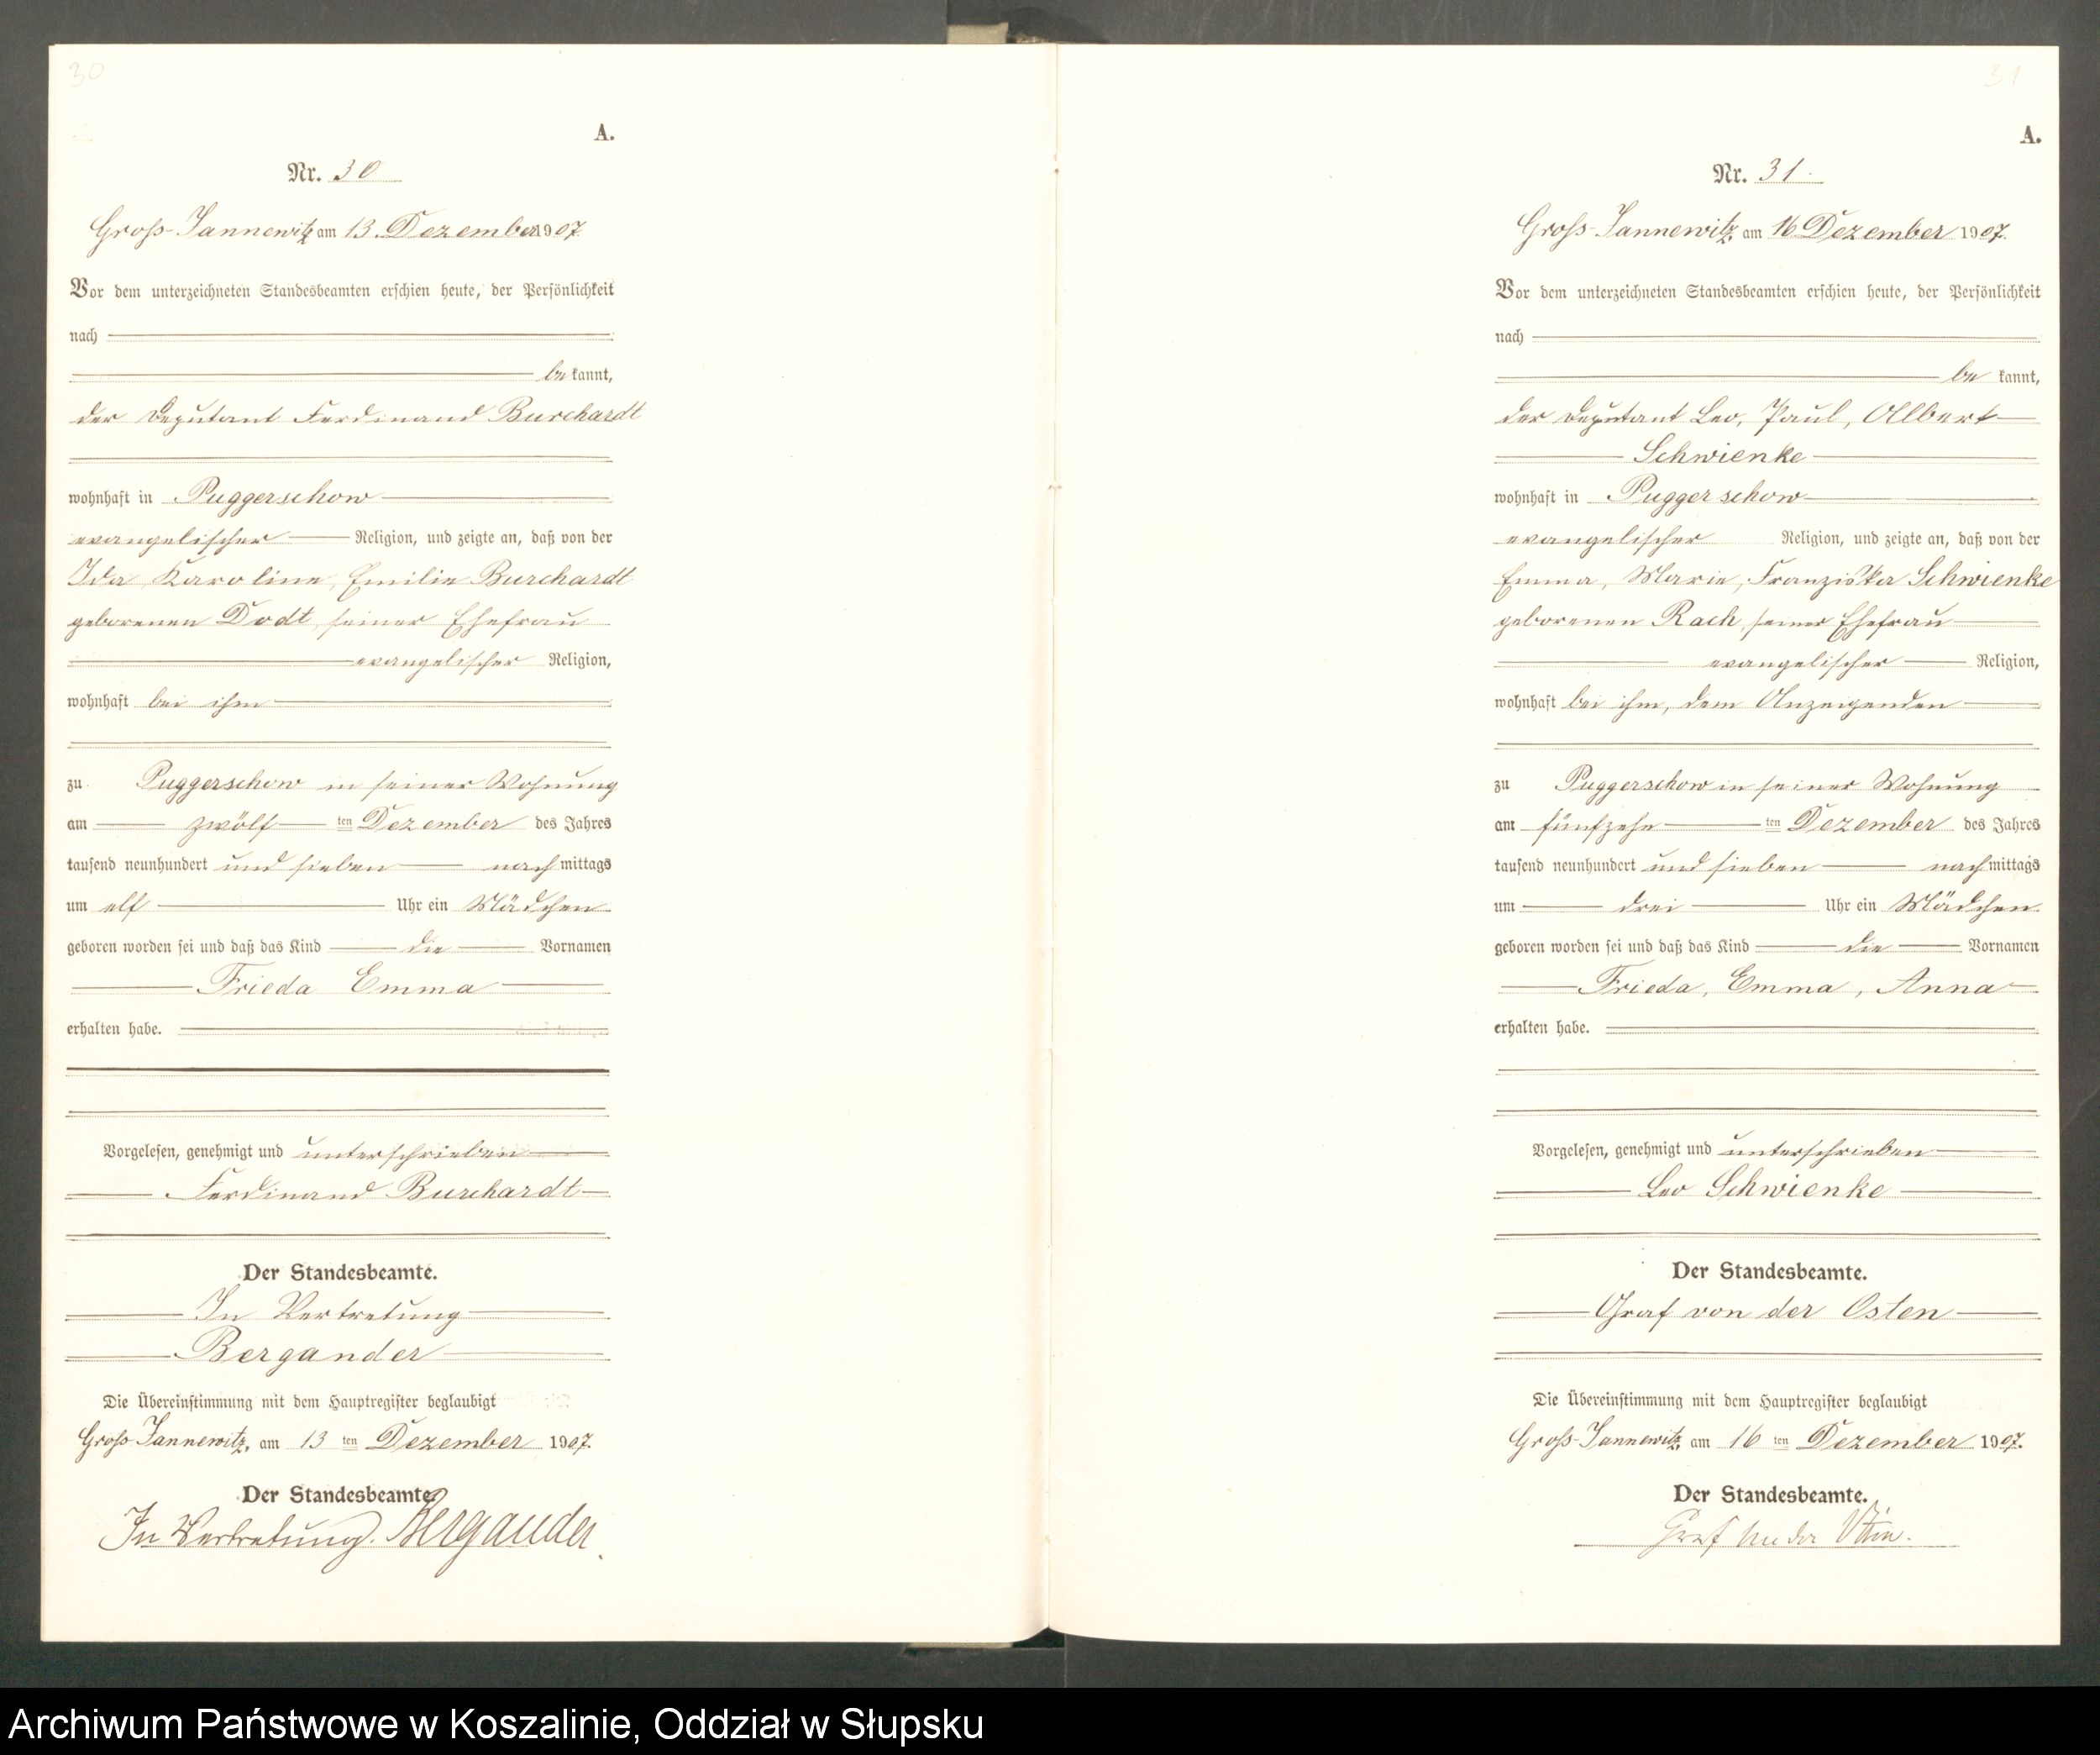 30
A.
Nr. 30
Groß-Jannewitz am 13. Dezember 1907.
Vor dem unterzeichneten Standesbeamten erschien heute, der Persönlichkeit
nach
bekannt,
der Deputant Ferdinand Burchardt
wohnhaft in Puggerschow
evangelischer Religion, und zeigte an, daß von der
Ida, Karoline, Emilie Burchardt
geborenen Dodt, seiner Ehefrau
evangelischer Religion,
wohnhaft bei ihm
zu Puggerschow in seiner Wohnung
am zwölf ten Dezember des Jahres
tausend neunhundert und sieben nachmittags
um elf Uhr ein Mädchen
geboren worden sei und daß das Kind die Vornamen
Frieda Emma
erhalten habe.
Vorgelesen, genehmigt und unterschrieben
Ferdinand Burchardt
Der Standesbeamte.
In Vertretung
Bergander
Die Übereinstimmung mit dem Hauptregister beglaubigt
Groß-Jannewitz, am 13 ten Dezember 1907.
Der Standesbeamte.
In Vertretung. Bergander.
31
A.
Nr. 31.
Groß-Jannewitz, am 16 Dezember 1907.
Vor dem unterzeichneten Standesbeamten erschien heute, der Persönlichkeit
nach
be kannt,
der Deputant Leo, Paul, Albert
Schwienke
wohnhaft in Puggerschow
evangelischer Religion, und zeigte an, daß von der
Emma, Marie, Franziska Schwienke
geborenen Rach, seiner Ehefrau
evangelischer Religion,
wohnhaft bei ihm, dem Anzeigenden
zu Puggerschow in seiner Wohnung
am fünfzehn ten Dezember des Jahres
tausend neunhundert und sieben nachmittags
um drei Uhr ein Mädchen
geboren worden sei und daß das Kind die Vornamen
Frieda, Emma, Anna
erhalten habe.
Vorgelesen, genehmigt und unterschrieben
Leo Schwienke
Der Standesbeamte.
Graf von der Osten
Die Übereinstimmung mit dem Hauptregister beglaubigt
Groß-Jannewitz, am 16 ten Dezember 1907.
Der Standesbeamte.
Graf von der Osten.
Archiwum Państwowe w Koszalinie, Oddział w Słupsku